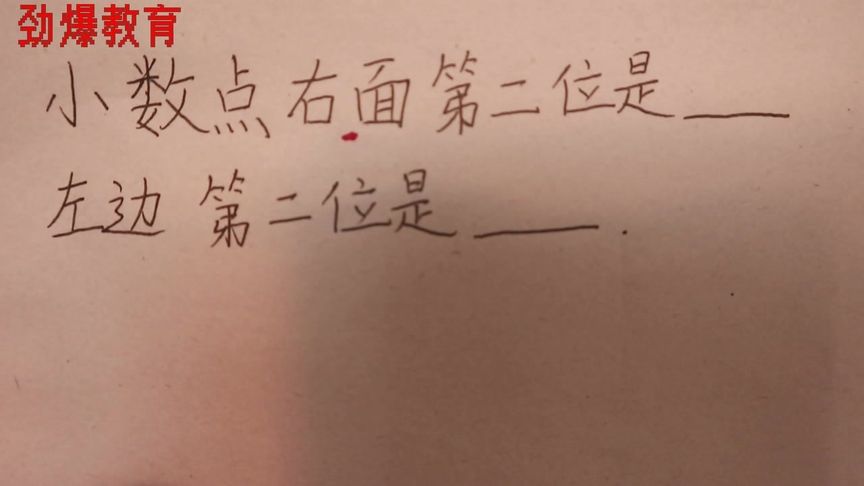 劲爆教育
小数点右面第二位是____
左边 第二位是____.